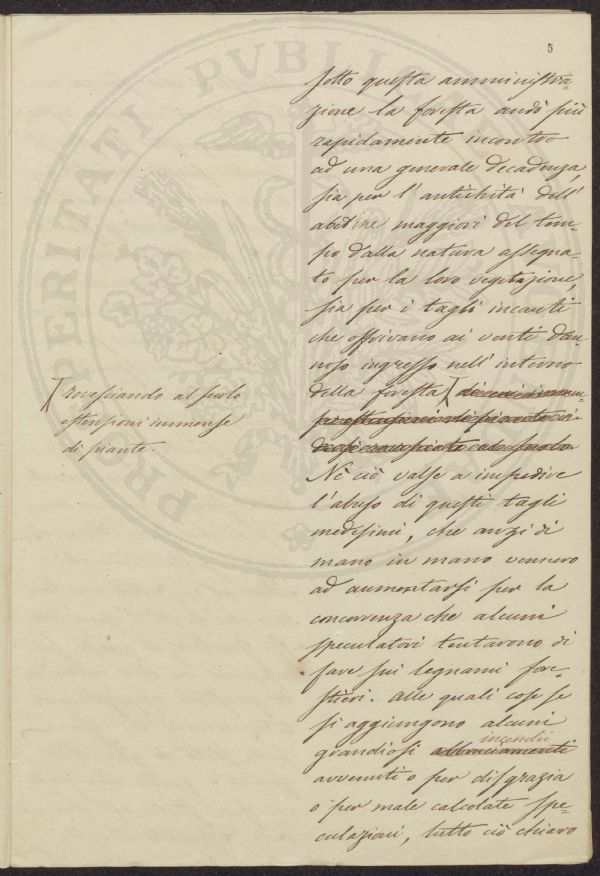 5
sotto questa amministra=
zione la foresta andò più
rapidamente incontro
ad una generale decadenza,
sia per l'antichità dell'
abetine maggiori del tem=
po dalla natura assegna=
to per la loro vegetazione,
sia per i tagli incauti
che offrivano ai venti dan=
noso ingresso nell'interno
della foresta
rovesciando al suolo
estensioni immense
di piante.
Nè ciò valse a impedire
l'abuso di questi tagli
medesimi, che anzi di
mano in mano vennero
ad aumentarsi per la
concorrenza che alcuni
speculatori tentavono di
fare sui legnami fore=
stieri. Alle quali cose se
si aggiungono alcuni
incendii
grandiosi abbruciamenti
avvenuti o per disgrazia
o per male calcolate spe=
culazioni, tutto ciò chiaro
PROSPERITATI PVBLIC